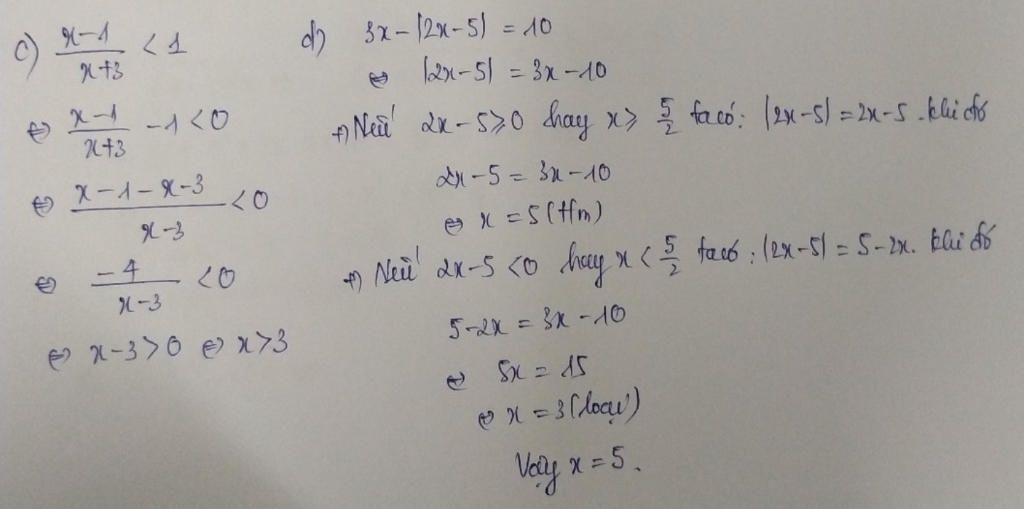 c) \frac{x-1}{x+3} < 1
⇔ \frac{x-1}{x+3} - 1 < 0
⇔ \frac{x-1-x-3}{x-3} < 0
⇔ \frac{-4}{x-3} < 0
⇔ x-3 > 0 ⇔ x > 3
d) 3x - |2x-5| = 10
⇔ |2x-5| = 3x-10
+) Nếu 2x-5 ≥ 0 hay x ≥ \frac{5}{2} ta có: |2x-5| = 2x-5. khi đó
2x-5 = 3x-10
⇔ x = 5 (t/m)
+) Nếu 2x-5 < 0 hay x < \frac{5}{2} ta có: |2x-5| = 5-2x. khi đó
5-2x = 3x-10
⇔ 5x = 15
⇔ x = 3 (loại)
Vậy x = 5.